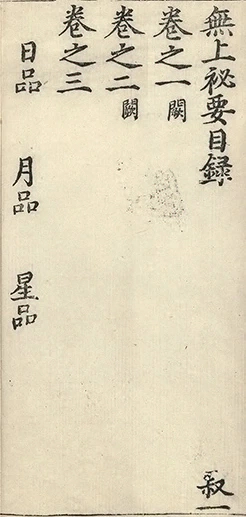 無上祕要目録 叔一
卷之一 闕
卷之二 闕
卷之三
日品 月品 星品